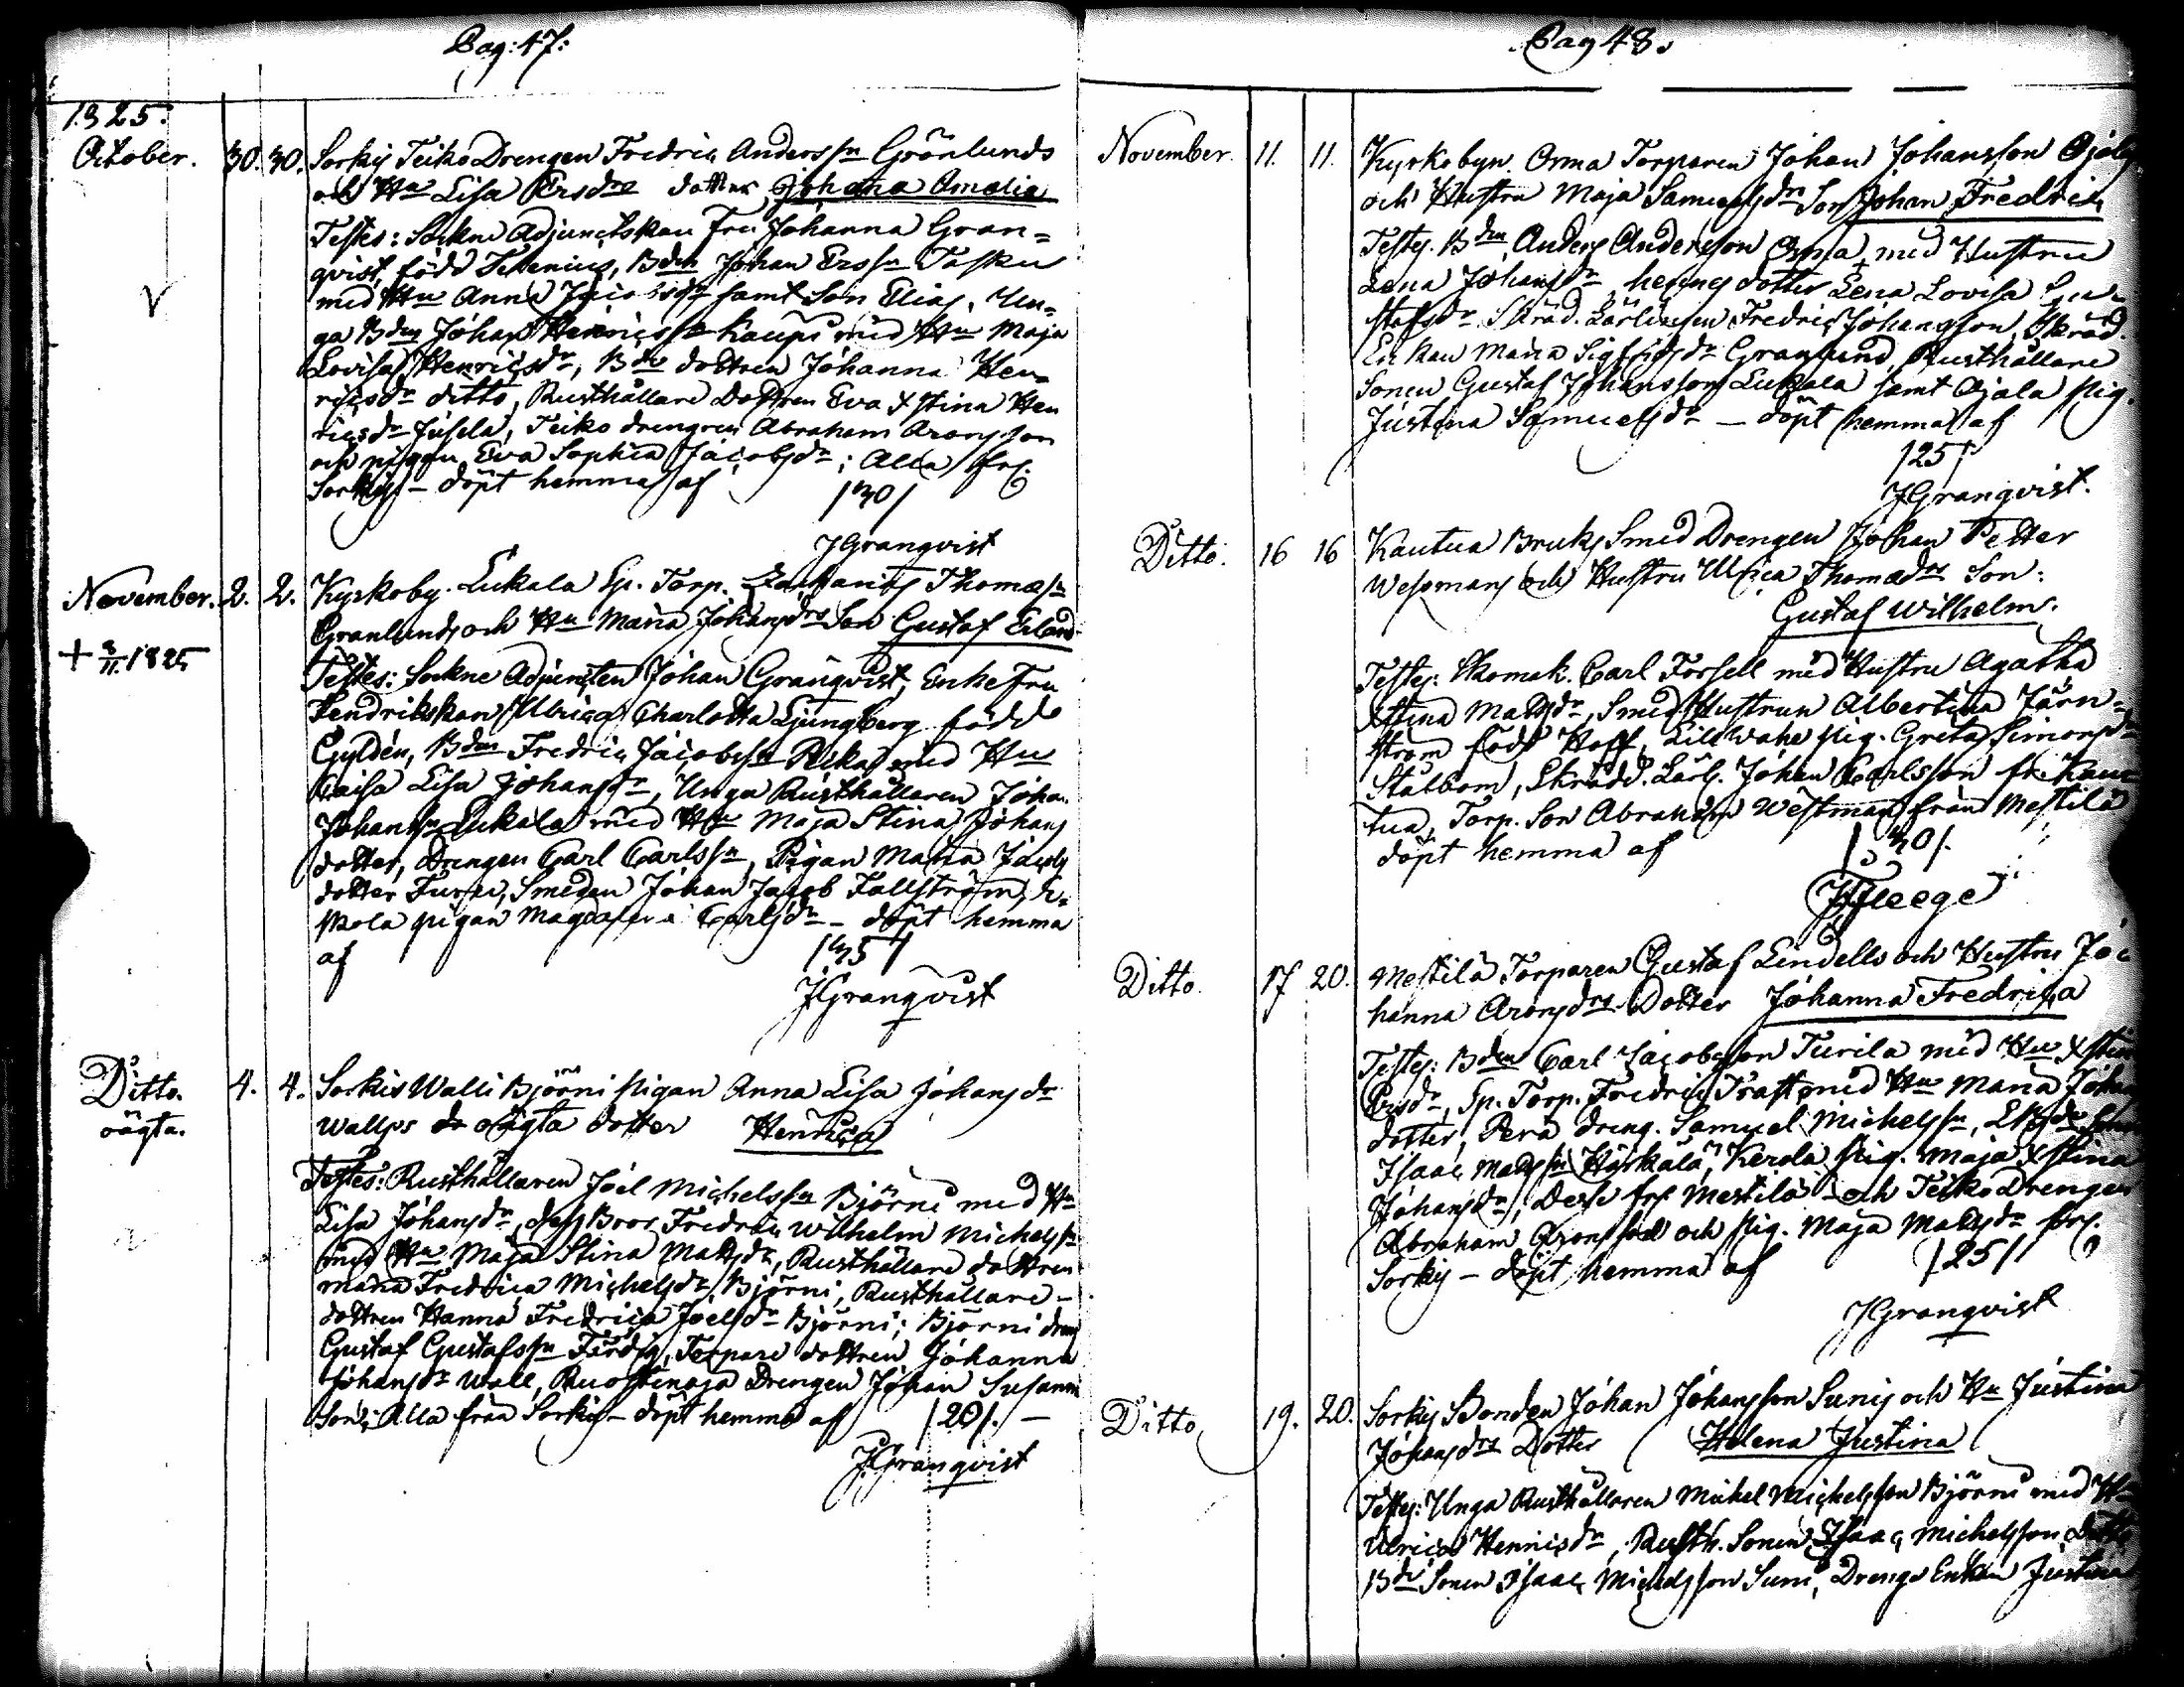 Pag: 47:
1825.
October. 30. 30. Sorkis Teiko Drengen Fredric Anderssn Grönlunds
och Hu Lisa Ersdrs dotter Johana Amalia
Testes: Sockne Adjunctskan Fru Johanna Gran=
qvist, född Terenius, Bden Johan Erssn Tasku
med Hu Anna Jacobsdr samt Son Elias, Un=
ga Bden Johan Henricssn Kaupi med Hu Maja
Lovisa Henricsdr, Bde dottren Johanna Hen=
ricsdr ditto, Rusthållare Dottren Eva Xstina Hen
ricsdr Jusela, Teiko drengen Abraham Aronsson
och pigan Eva Sophia Jacobsdr; Alla frf.
Sorkis – döpt hemma af
/30/
JGranqvist
November. 2. 2. Kyrkoby. Lukala Sp. Torp. Zachariæ Thomæsn
Granlunds och Hu Maria Johansdrs Son Gustaf Erland
+ 8/11 1825
Testes: Sockne Adjuncten Johan Granqvist, Enkefru
Fendrikskan Ulrica Charlotta Ljungberg född
Gyldén, Bden Fredric Jacobssn med Hu
Caisa Lisa Johansdr, Unga Rusthållaren Johan
Johanssn Lukala med Hu Maja Stina Johans
dotter, Drengen Carl Carlssn, Pigan Maria Jacobs
dotter, Smeden Johan Jacob Fallström,
pigan Magdalena Carlsdr – döpt hemma
af
/35/
JGranqvist
Ditto. 4. 4. Sorkis Walli Björni pigan Anna Lisa Johansdr
oägta.
Wallps oägta dotter Henrica
Testes: Rusthållaren Joel Michelssn Björni med Hu
Lisa Johansdr, dess Bror Fredric Wilhelm Michelssn
med Hu Maja Stina Mattsdr, Rusthållare dottren
Maria Fredrica Michelsdr Björni, Rusthållare-
dottren Hanna Fredrica Joelsdr Björni; Björni dreng
Gustaf Gustafssn Färdig, Torpare dottren Johanna
Johansdr Wall, Ruostenoja Drengen Johan Susanni
Son; Alla från Sorkis – döpt hemma af /20/. –
JGranqvist
Pag 48.
November. 11. 11. Kyrkobyn. Orma Torparen Johan Johansson
och Hustru Maja Samuelsdrs Son Johan Fredric
Testes. Bden Anders Andersson Orma med Hustru
Lena Johansdr, hennes dotter Lena Lovisa Gu=
stafsdr, Skräd. Lärlingen Fredric Johansson, Skräd.
Enkan Maria Sigfridsdr Granlund, Rusthållare
Sonen Gustaf Johansson Lukala samt Ojala Pig.
Justina Samuelsdr – döpt hemma af
/25/
JGranqvist.
Ditto. 16 16 Kautua Bruks Smed Drengen Johan Petter
Wessmans och Hustru Ulrica Thomædrs Son:
Gustaf Wilhelm.
Testes: Skomak. Carl Forsell med Hustru Agatha
Xstina Mattsdr, Smed Hustrun Albertina Järn=
ström född Hoff, Lill Wahe Pig. Greta Simonsdr
Stålbom, Skrädd. Lärl. Johan Karlsson fr. Kau=
tua, Torp. Son Abraham Westman från Mestilä
döpt hemma af /30/.
JFleege
Ditto. 17 20. Mestilä Torparen Gustaf Lindells och Hustru Jo
hanna Aronsdrs Dotter Johanna Fredrica
Testes: Bden Carl Jacobsson Turila med Hu Xstina
Ersdr, Sp. Torp. Fredric Traff med Hu Maria Johans
dotter, Pera dreng. Samuel Michelssn,
Isaac Mattssn Härkälä, Kerola Pig. Maja Xstina
Johansdr; Desse frf. Mestilä och Teiko Drengen
Abraham Aronsson och Pig. Maja Mattsdr frf.
Sorkis – döpt hemma af /25/
JGranqvist
Ditto 19. 20. Sorkis Bonden Johan Johansson Sunis och Hu Justina
Johansdrs Dotter Helena Justina
Testes: Unga Rusthållaren Michel Michelsson Björni med Hu
Ulrica Henricsdr, Rusth. Sonen Isaac Michelsson ditto
Bde Sonen Isaac Michelsson Suni, Drenge Enkan Justina